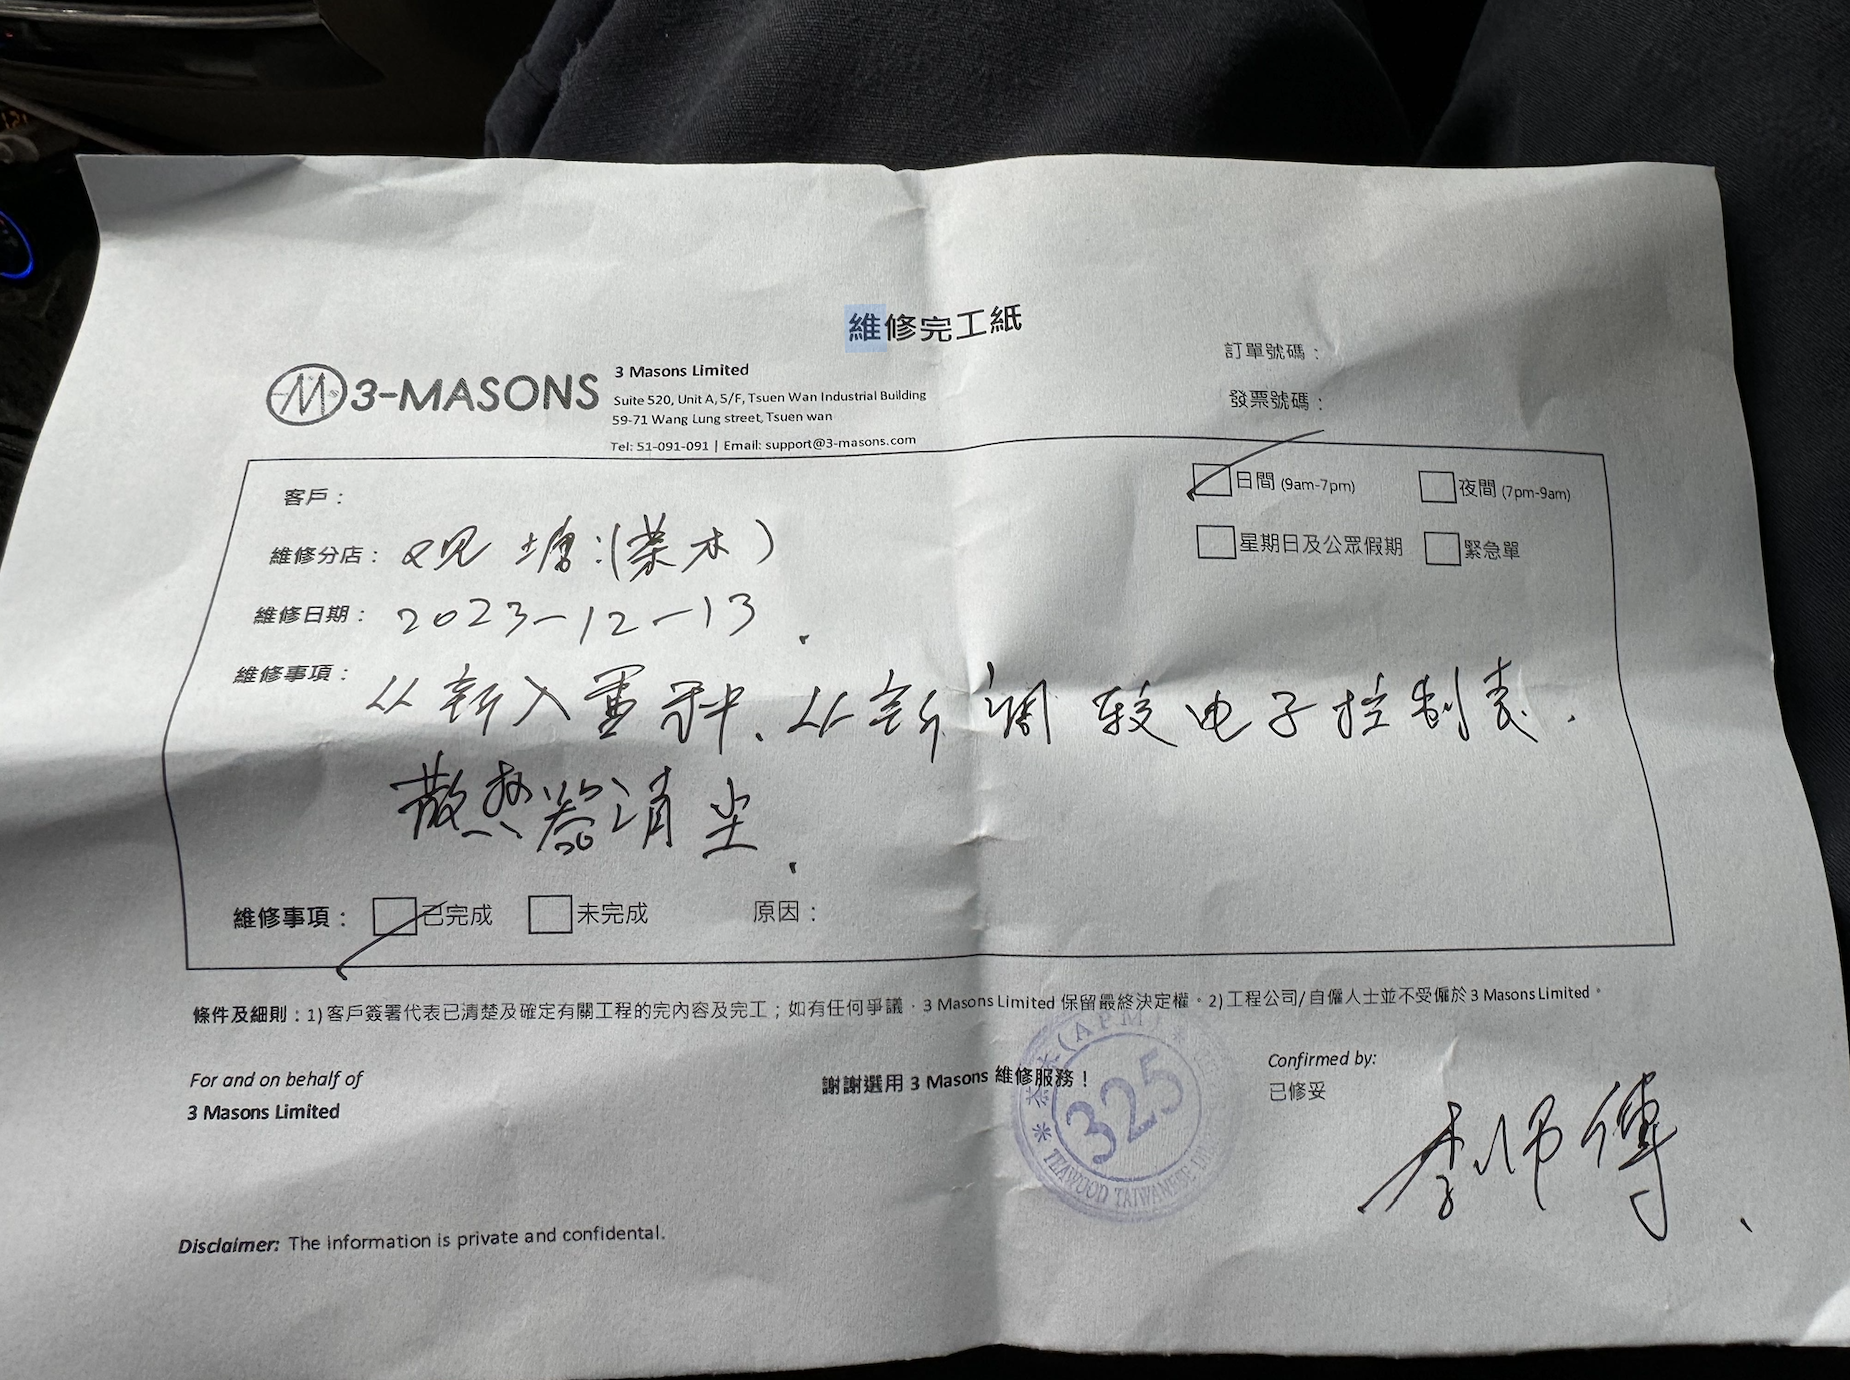 維修完工紙
3-MASONS
3 Masons Limited
Suite 520, Unit A, 5/F, Tsuen Wan Industrial Building
59-71 Wang Lung street, Tsuen wan
Tel: 51-091-091 | Email: support@3-masons.com
訂單號碼：
發票號碼：
日間 (9am-7pm) 夜間 (7pm-9am)
星期日及公眾假期 緊急單
客戶：
維修分店： 观塘:(茶木)
維修日期： 2023-12-13.
維修事項： 从新入雪种、从新调较电子控制表.
散热器清尘.
維修事項： 已完成 未完成 原因：
條件及細則：1) 客戶簽署代表已清楚及確定有關工程的完內容及完工；如有任何爭議，3 Masons Limited 保留最終決定權。2) 工程公司/自僱人士並不受僱於 3 Masons Limited。
For and on behalf of
3 Masons Limited
謝謝選用 3 Masons 維修服務！
茶木(APM)
325
TEAWOOD TAIWANESE
Confirmed by:
已修妥
李师傅.
Disclaimer: The information is private and confidental.